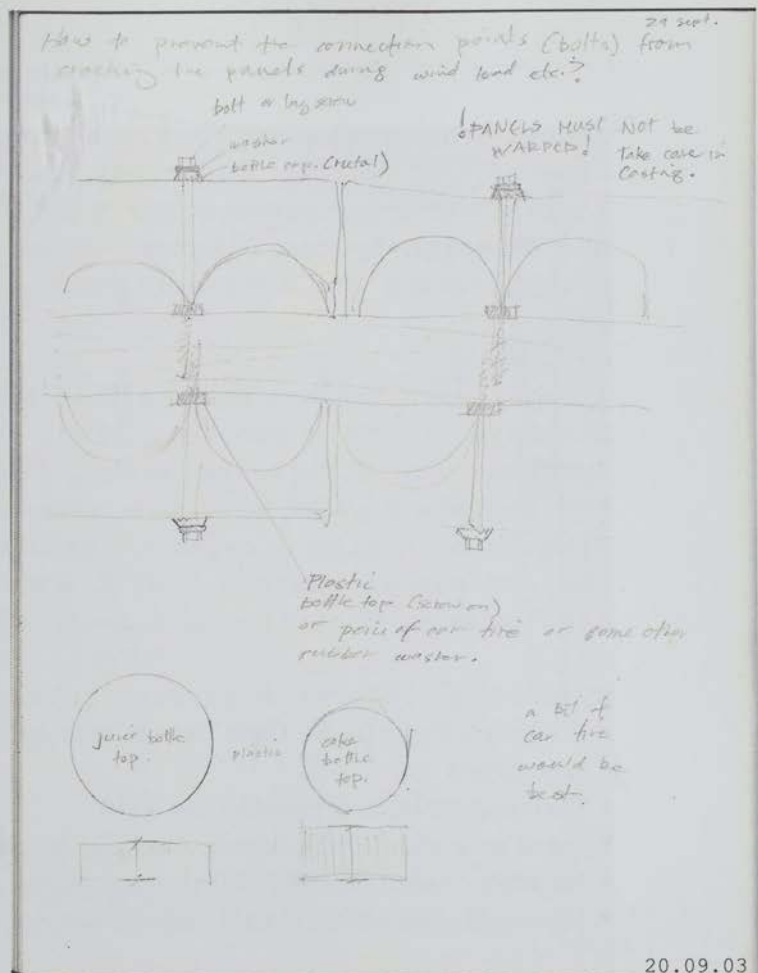 29 sept.
How to prevent the connection points (bolts) from
cracking the panels during wind load etc.?
bolt or lag screw
washer
bottle cap. (metal)
!PANELS MUST NOT be
WARPED!
Take care in
Casting.
Plastic
bottle top (screw on)
or peice of car tire or some other
rubber washer.
juice bottle
top.
plastic
coke
bottle
top.
a bit of
car tire
would be
best.
20.09.03